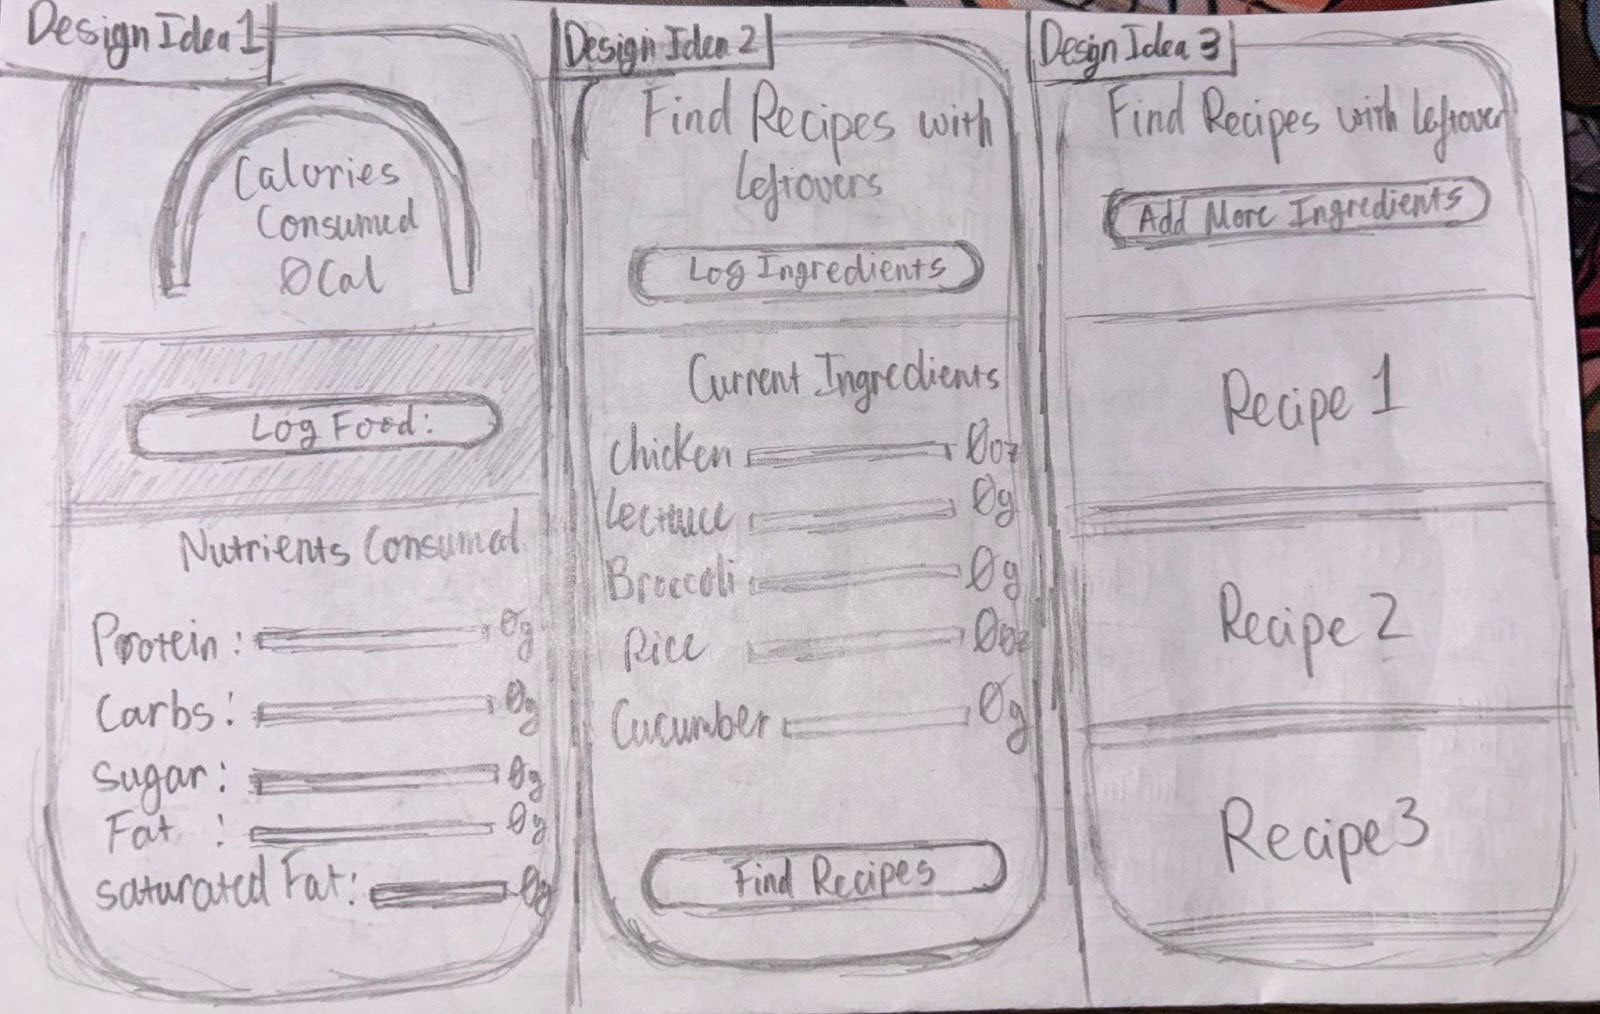 Design Idea 1
Calories
Consumed
0Cal
Log Food:
Nutrients Consumed
Protein: 0g
Carbs: 0g
Sugar: 0g
Fat : 0g
saturated Fat: 0g
Design Idea 2
Find Recipes with
Leftovers
Log Ingredients
Current Ingredients
chicken 0oz
Lecttuce 0g
Broccoli 0g
Rice 0oz
Cucumber 0g
Find Recipes
Design Idea 3
Find Recipes with Leftover
Add More Ingredients
Recipe 1
Recipe 2
Recipe 3